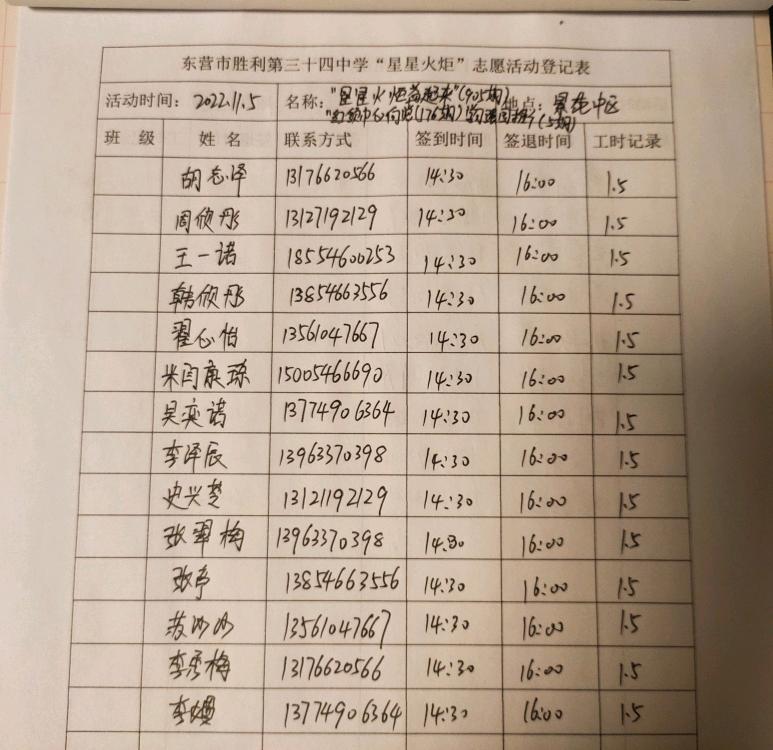 东营市胜利第三十四中学“星星火炬”志愿活动登记表
活动时间：2022.11.5 名称：“星星火炬益起来”(905期) 地点：景苑中区
(176期) (5期)
班 级 姓 名 联系方式 签到时间 签退时间 工时记录
胡志泽 13176620566 14:30 16:00 1.5
周欣彤 13127192129 14:30 16:00 1.5
王一诺 18554600253 14:30 16:00 1.5
韩欣彤 13854663556 14:30 16:00 1.5
翟心怡 13561047667 14:30 16:00 1.5
米闫康琢 15005466690 14:30 16:00 1.5
吴奕诺 13774906364 14:30 16:00 1.5
李泽辰 13963370398 14:30 16:00 1.5
史兴楚 13121192129 14:30 16:00 1.5
张翠梅 13963370398 14:30 16:00 1.5
张亭 13854663556 14:30 16:00 1.5
苏沙沙 13561047667 14:30 16:00 1.5
李秀梅 13176620566 14:30 16:00 1.5
李 13774906364 14:30 16:00 1.5